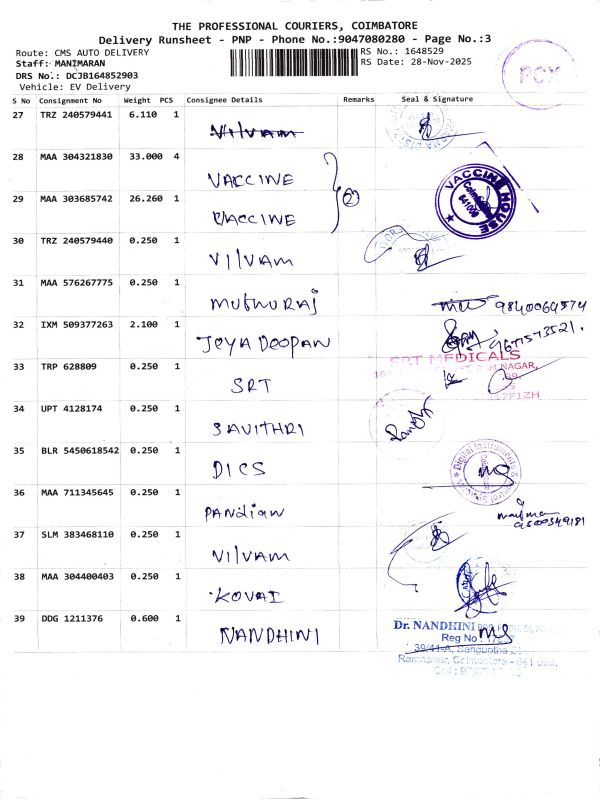 THE PROFESSIONAL COURIERS, COIMBATORE
Delivery Runsheet - PNP - Phone No.:9047080280 - Page No.:3
Route: CMS AUTO DELIVERY
RS No.: 1648529
Staff: MANIMARAN
RS Date: 28-Nov-2025
DRS No.: DCJB164852903
Vehicle: EV Delivery
PCX
S No Consignment No Weight PCS Consignee Details Remarks Seal & Signature
27 TRZ 240579441 6.110 1 Vilvam
28 MAA 304321830 33.000 4 VACCINE
VACCINE HOUSE
Coimbatore
641009
29 MAA 303685742 26.260 1 VACCINE
2
30 TRZ 240579440 0.250 1 Vilvam
31 MAA 576267775 0.250 1 Muthuraj 9840064574
32 IXM 509377263 2.100 1 JEYADEEPAN 9677573521.
SRT MEDICALS
33 TRP 628809 0.250 1 SRT
34 UPT 4128174 0.250 1 SAVITHRI
35 BLR 5450618542 0.250 1 DICS
36 MAA 711345645 0.250 1 PANDIAN
9500349181
37 SLM 383468110 0.250 1 VILVAM
38 MAA 304400403 0.250 1 KOVAI
39 DDG 1211376 0.600 1 NANDHINI
Dr. NANDHINI
Reg No
39/41-A, Senguptha
Ramnagar, Coimbatore - 641 009.